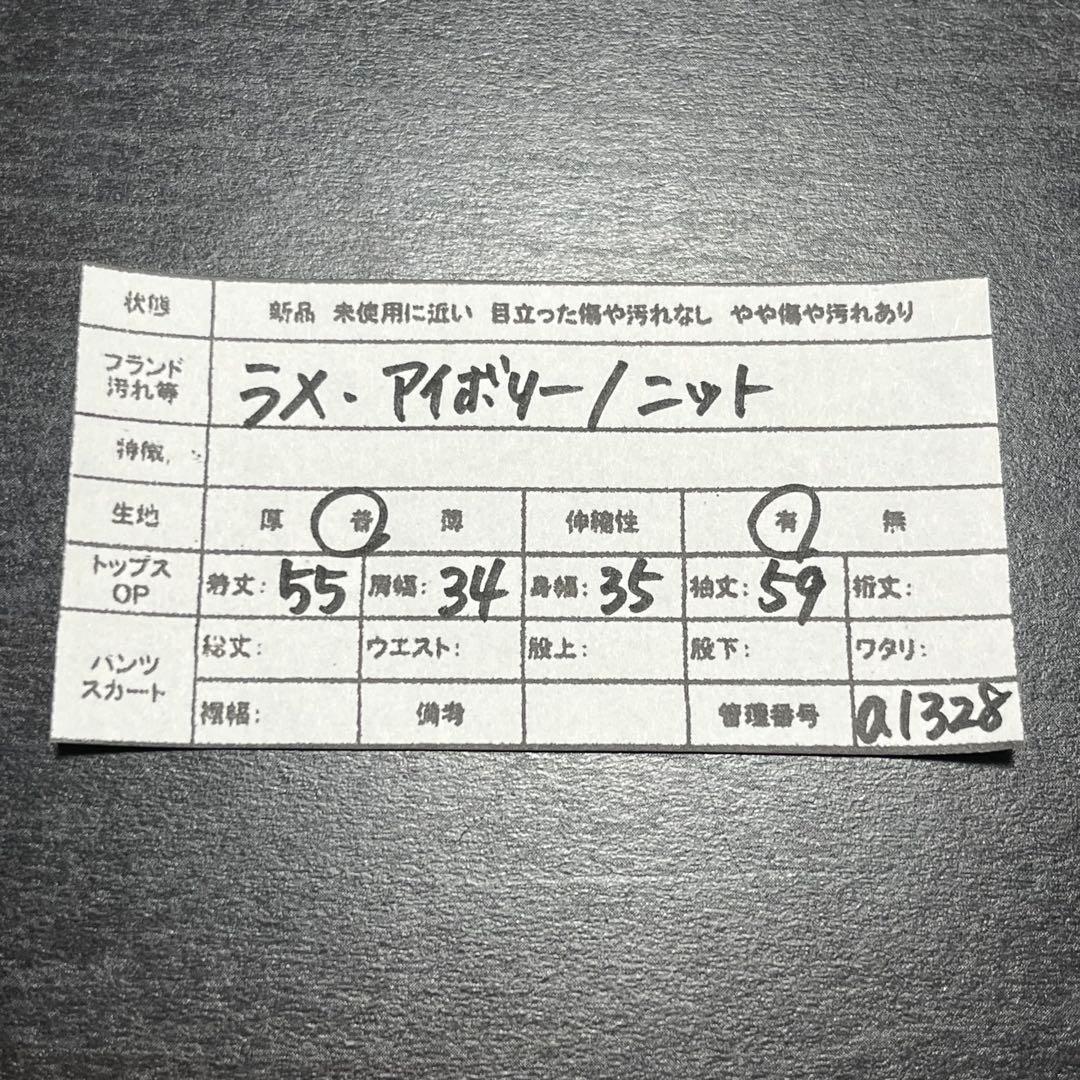 状態 新品 未使用に近い 目立った傷や汚れなし やや傷や汚れあり
フランド
汚れ等
ラメ・アイボリー/ニット
特徴
生地 厚 普 薄 伸縮性 有 無
トップス
OP
着丈: 55 肩幅: 34 身幅: 35 袖丈: 59 裄丈:
パンツ
スカート
総丈: ウエスト: 股上: 股下: ワタリ:
裾幅: 備考 管理番号 a1328